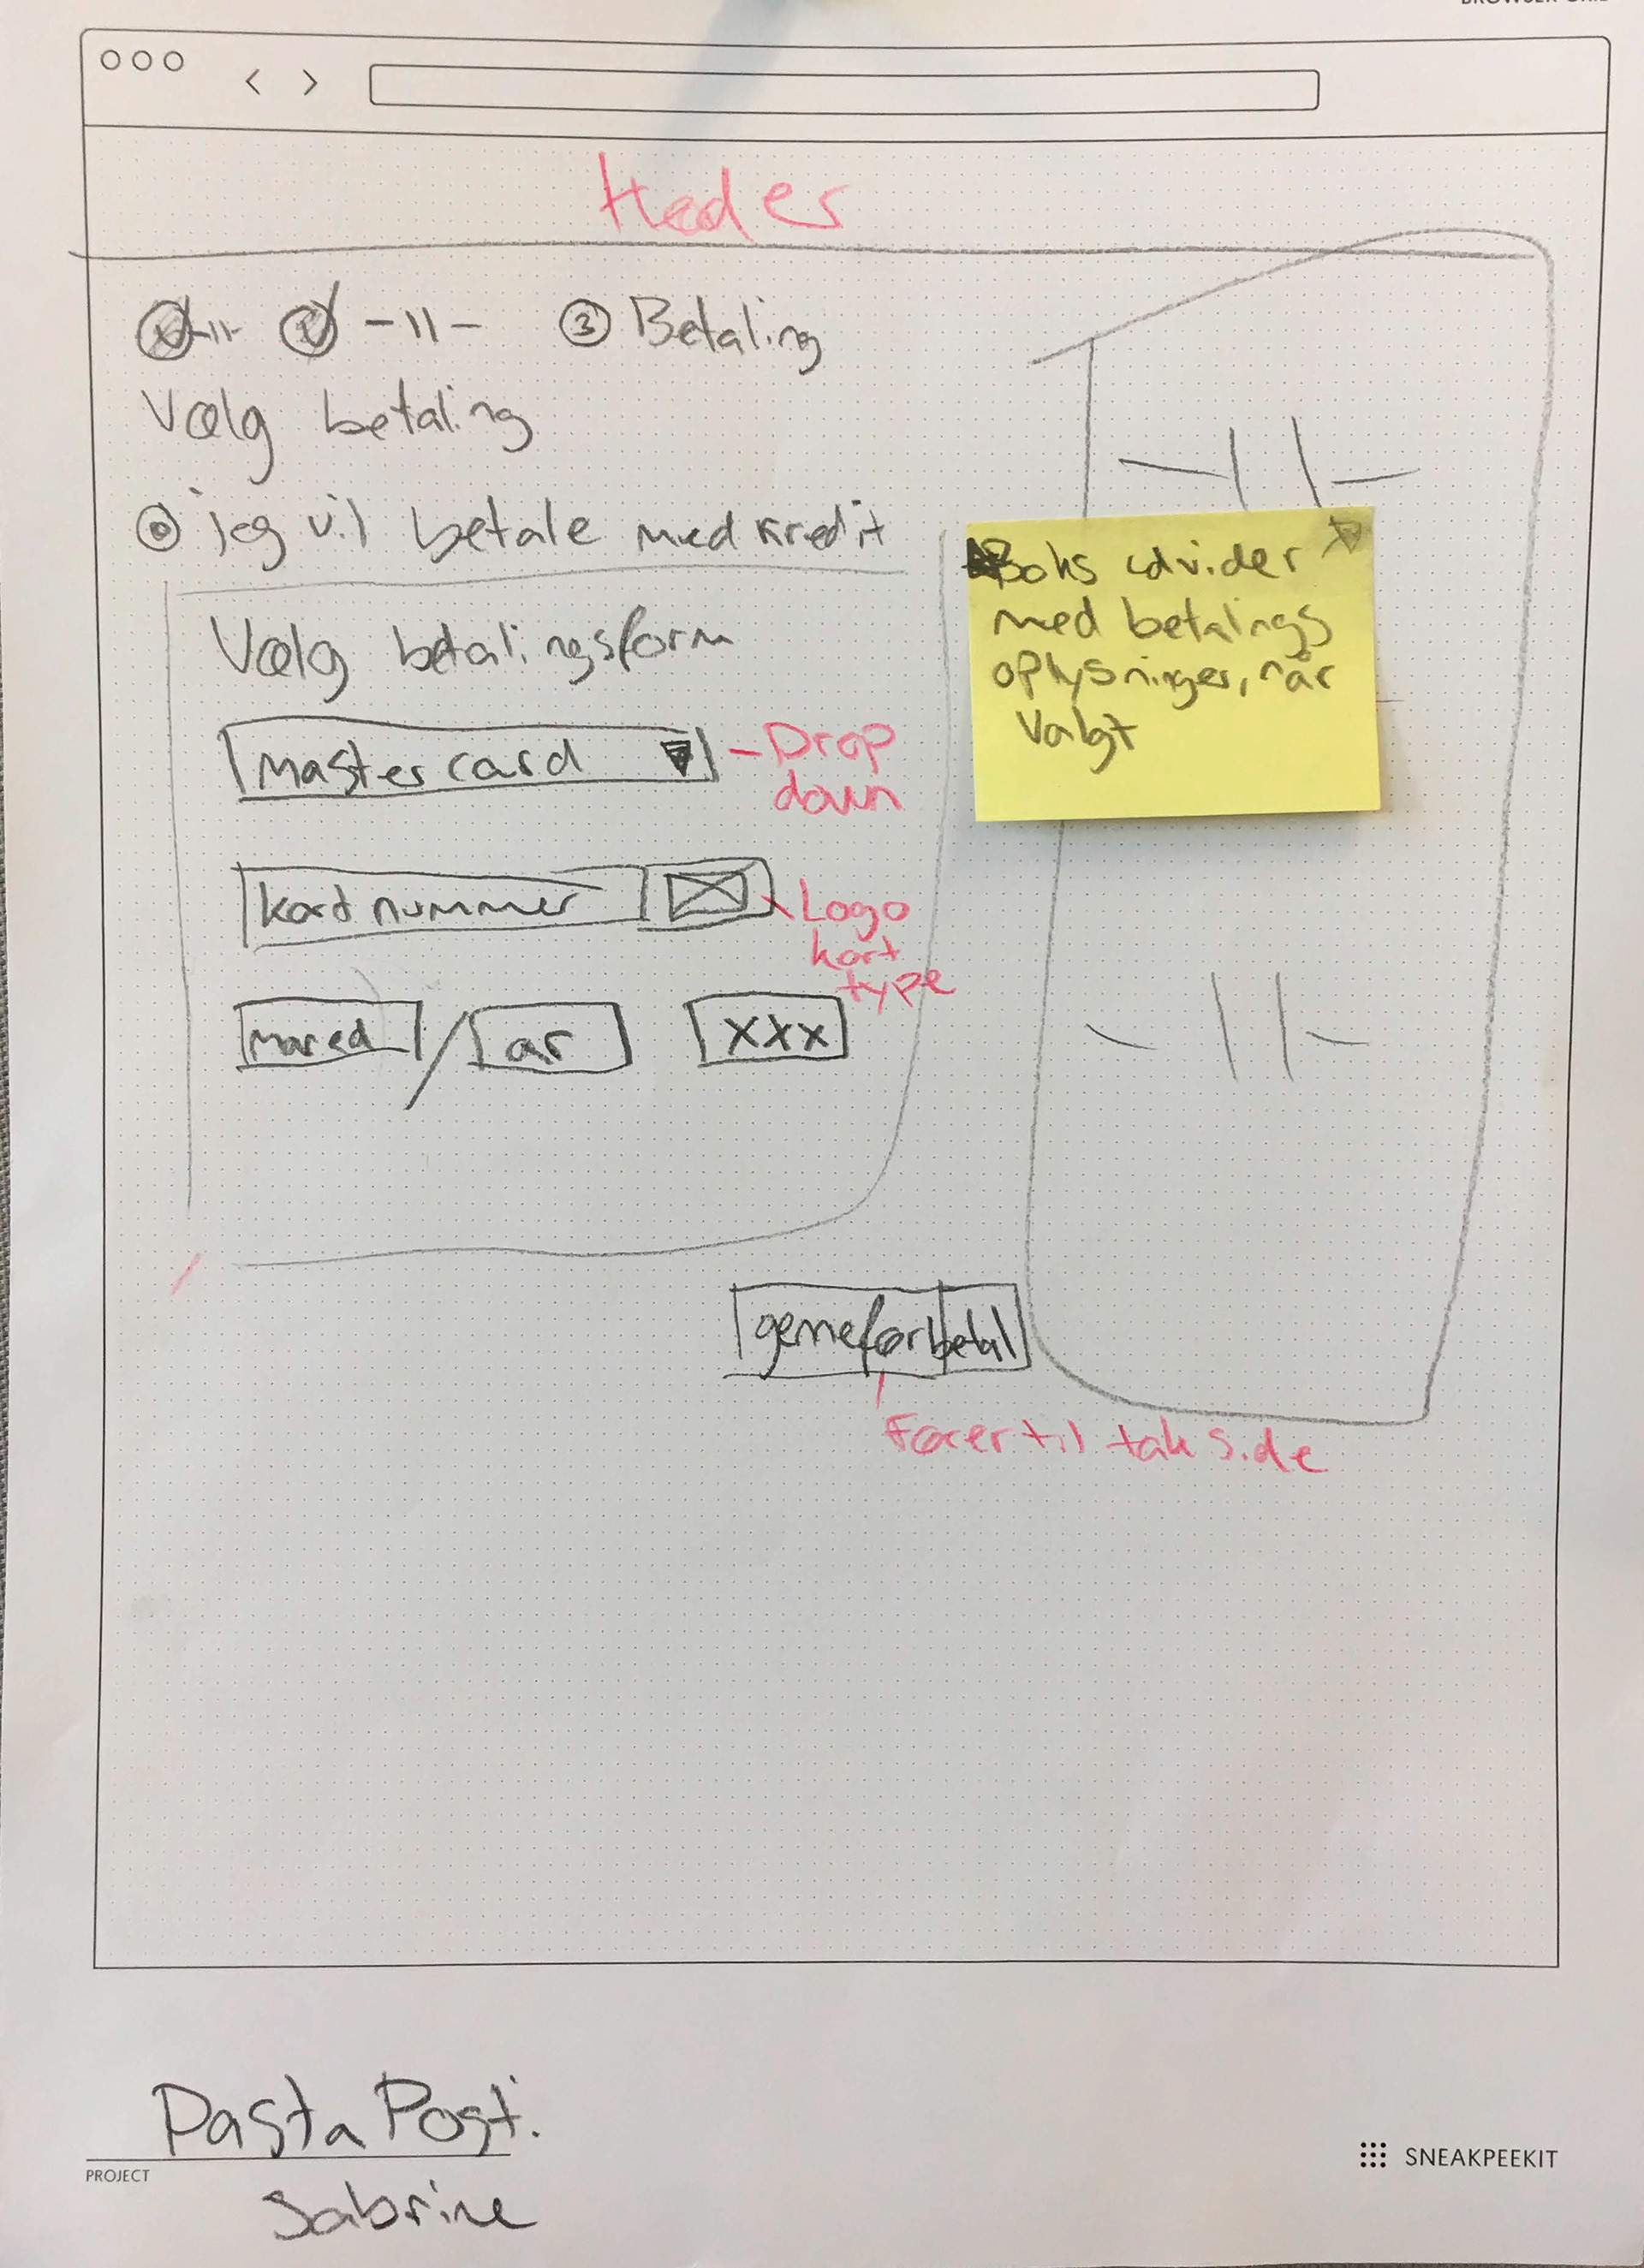 Header
-11- -11- 3 Betaling
Vælg betaling
jeg vil betale med kredit
-11-
Boks udvider
med betalings
oplysninger, når
valgt
Vælg betalingsform
Mastercard
- Drop
down
kort nummer
Logo
kort
type
måned / år xxx
-11-
gennemfør betal
Fører til tak side
Pasta Post.
PROJECT
Sabrine
SNEAKPEEKIT